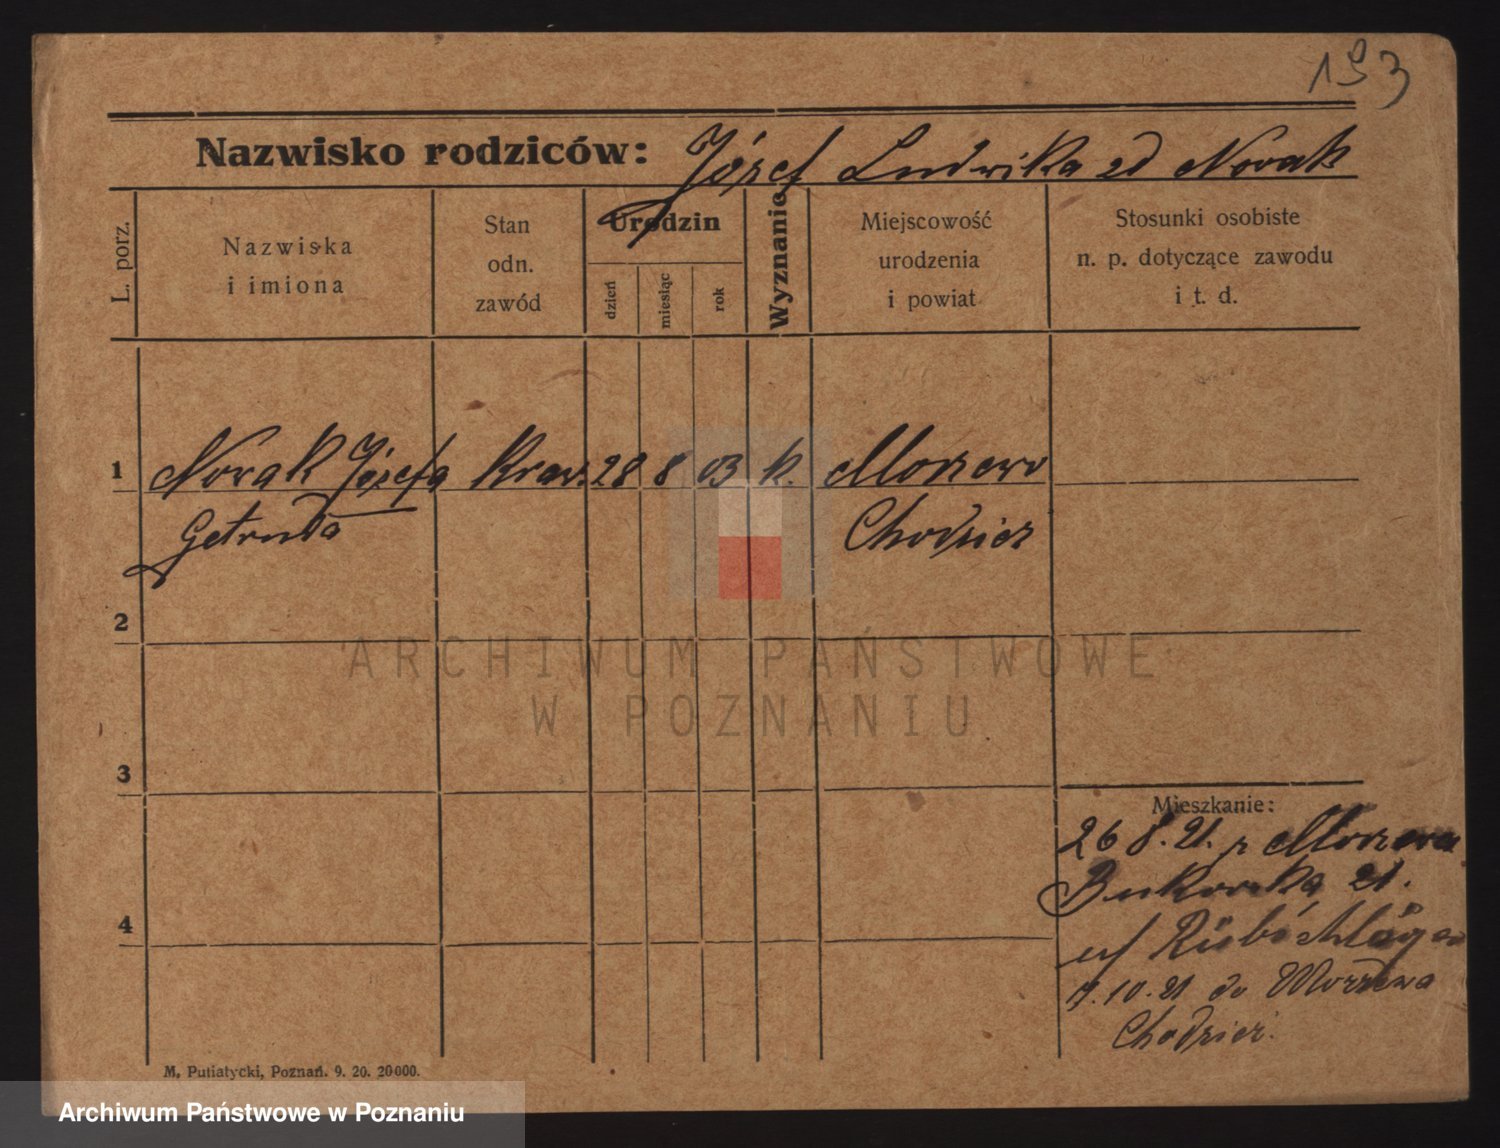 193
Nazwisko rodziców: Józef Ludwika zd Novak
L. porz.
Nazwiska
i imiona
Stan
odn.
zawód
Urodzin
dzień
miesiąc
rok
Wyznanie
Miejscowość
urodzenia
i powiat
Stosunki osobiste
n. p. dotyczące zawodu
i t. d.
1 Novak Józefa Kraw. 28 8 03 k. Morzewo
Getruda Chodzież
2
3
4
Mieszkanie:
26 8. 21. z Morzewa
Bukowska 21.
7. 10. 21 do Morzewa
Chodzież.
M. Putiatycki, Poznań. 9. 20. 20000.
ARCHIWUM PAŃSTWOWE
W POZNANIU
Archiwum Państwowe w Poznaniu